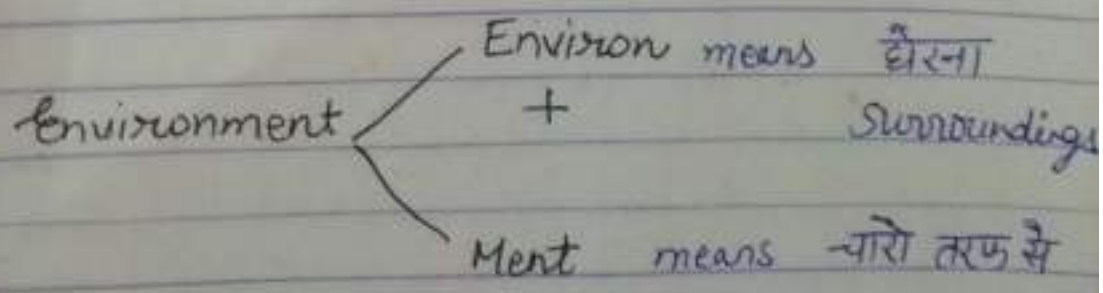 Environ means घेरना
Environment + Surroundings
Ment means चारो तरफ से